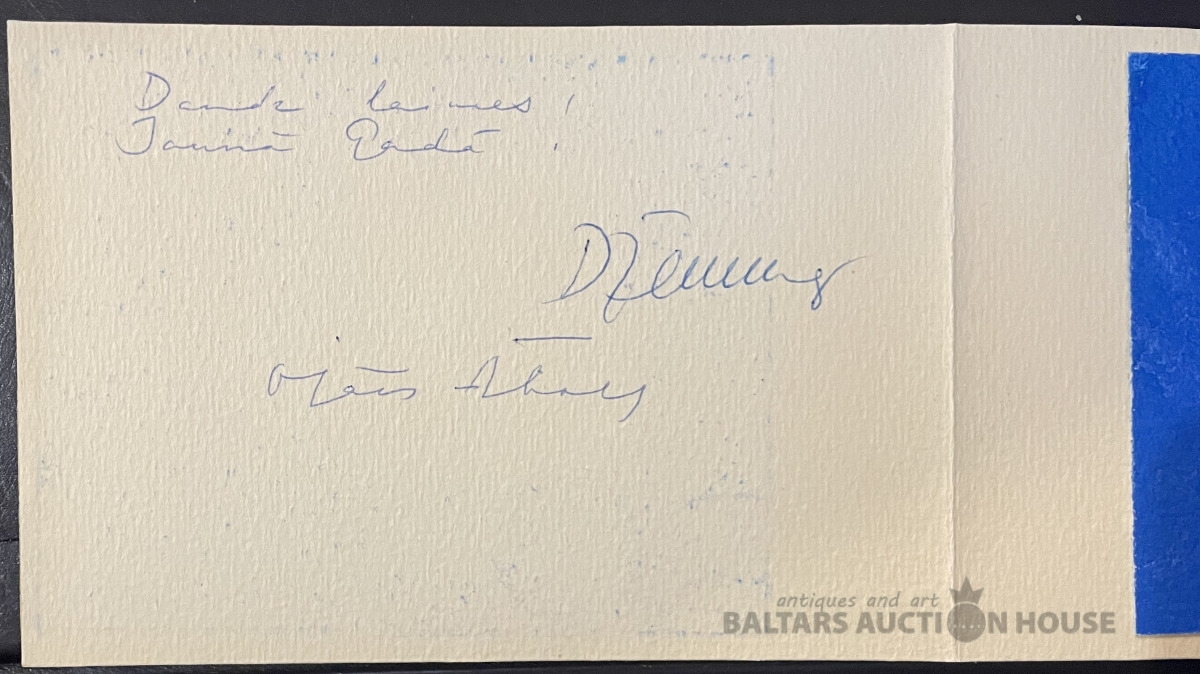 Daudz laimes!
Jaunā Gadā!
Ojārs Ābols
antiques and art
BALTARS AUCTION HOUSE